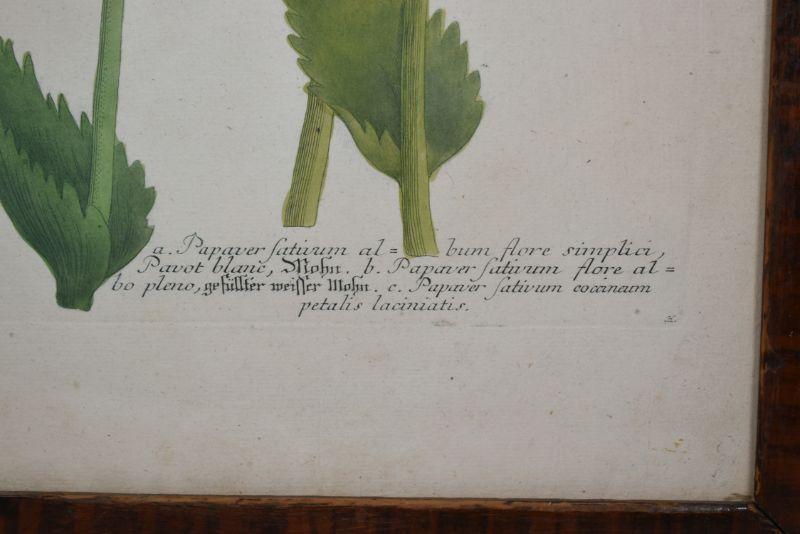 a. Papaver sativum al= bum flore simplici,
Pavot blanc, Mohn. b. Papaver sativum flore al=
bo pleno, gefüllter weisser Mohn. c. Papaver sativum coccineum
petalis laciniatis.